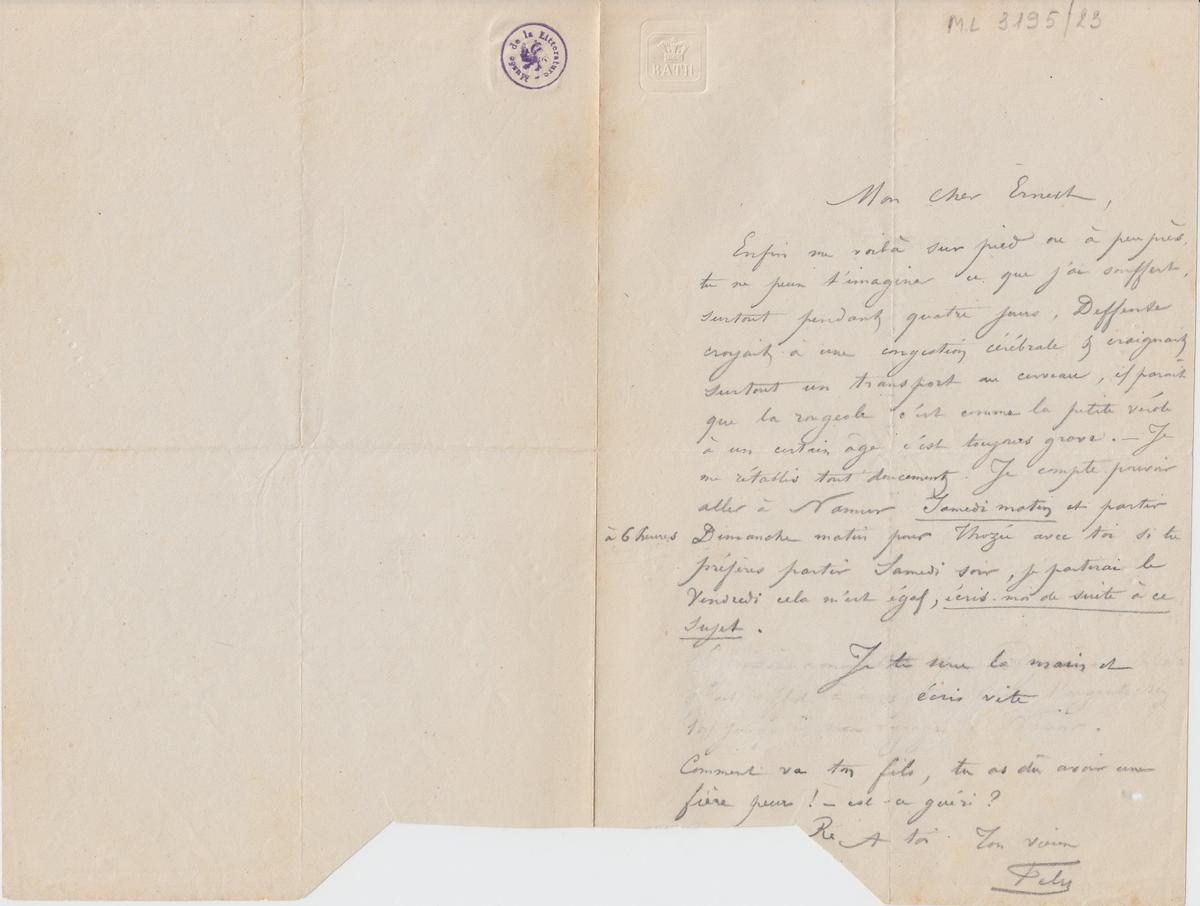 Musée de la Littérature
BATH
M.L 3195/23
Mon cher Ernest,
Enfin me voilà sur pied ou à peu près,
tu ne peux t'imaginer ce que j'ai souffert,
surtout pendant quatre jours, Deffense
croyait à une congestion cérébrale & craignait
surtout un transport au cerveau, il parait
que la rougeole c'est comme la petite vérole
à un certain âge c'est toujours grave. — Je
me rétablis tout doucement. Je compte pouvoir
aller à Namur Samedi matin et partir
à 6 heures Dimanche matin pour Thozée avec toi si tu
préfères partir Samedi soir, je partirai le
Vendredi cela m'est égal, écris-moi de suite à ce
sujet.
Je te serre la main et
écris vite
Comment va ton fils, tu as dû avoir une
fière peur! — est-ce guéri?
Re A toi Ton vieux
Fely